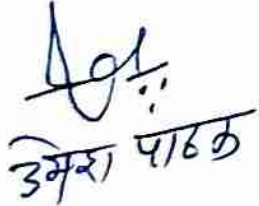 उमेश पाठक